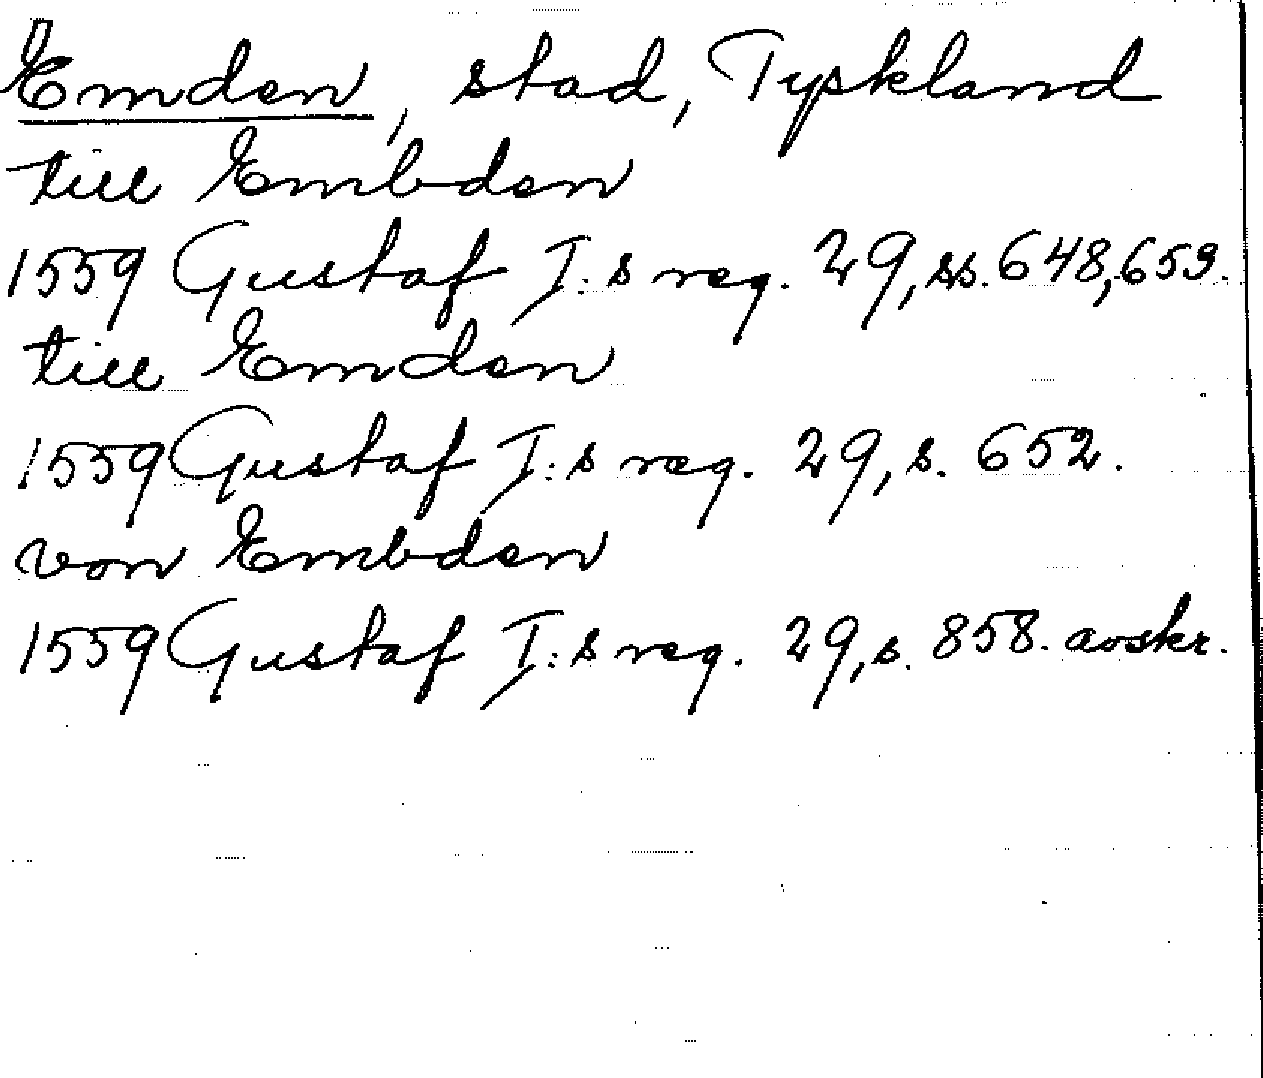 Emden, stad, Tyskland
till Embden
1559 Gustaf I:s reg. 29, ss. 648, 653.
till Emden
1559 Gustaf I:s reg. 29, s. 652.
von Embden
1559 Gustaf I:s reg. 29, s. 858. avskr.